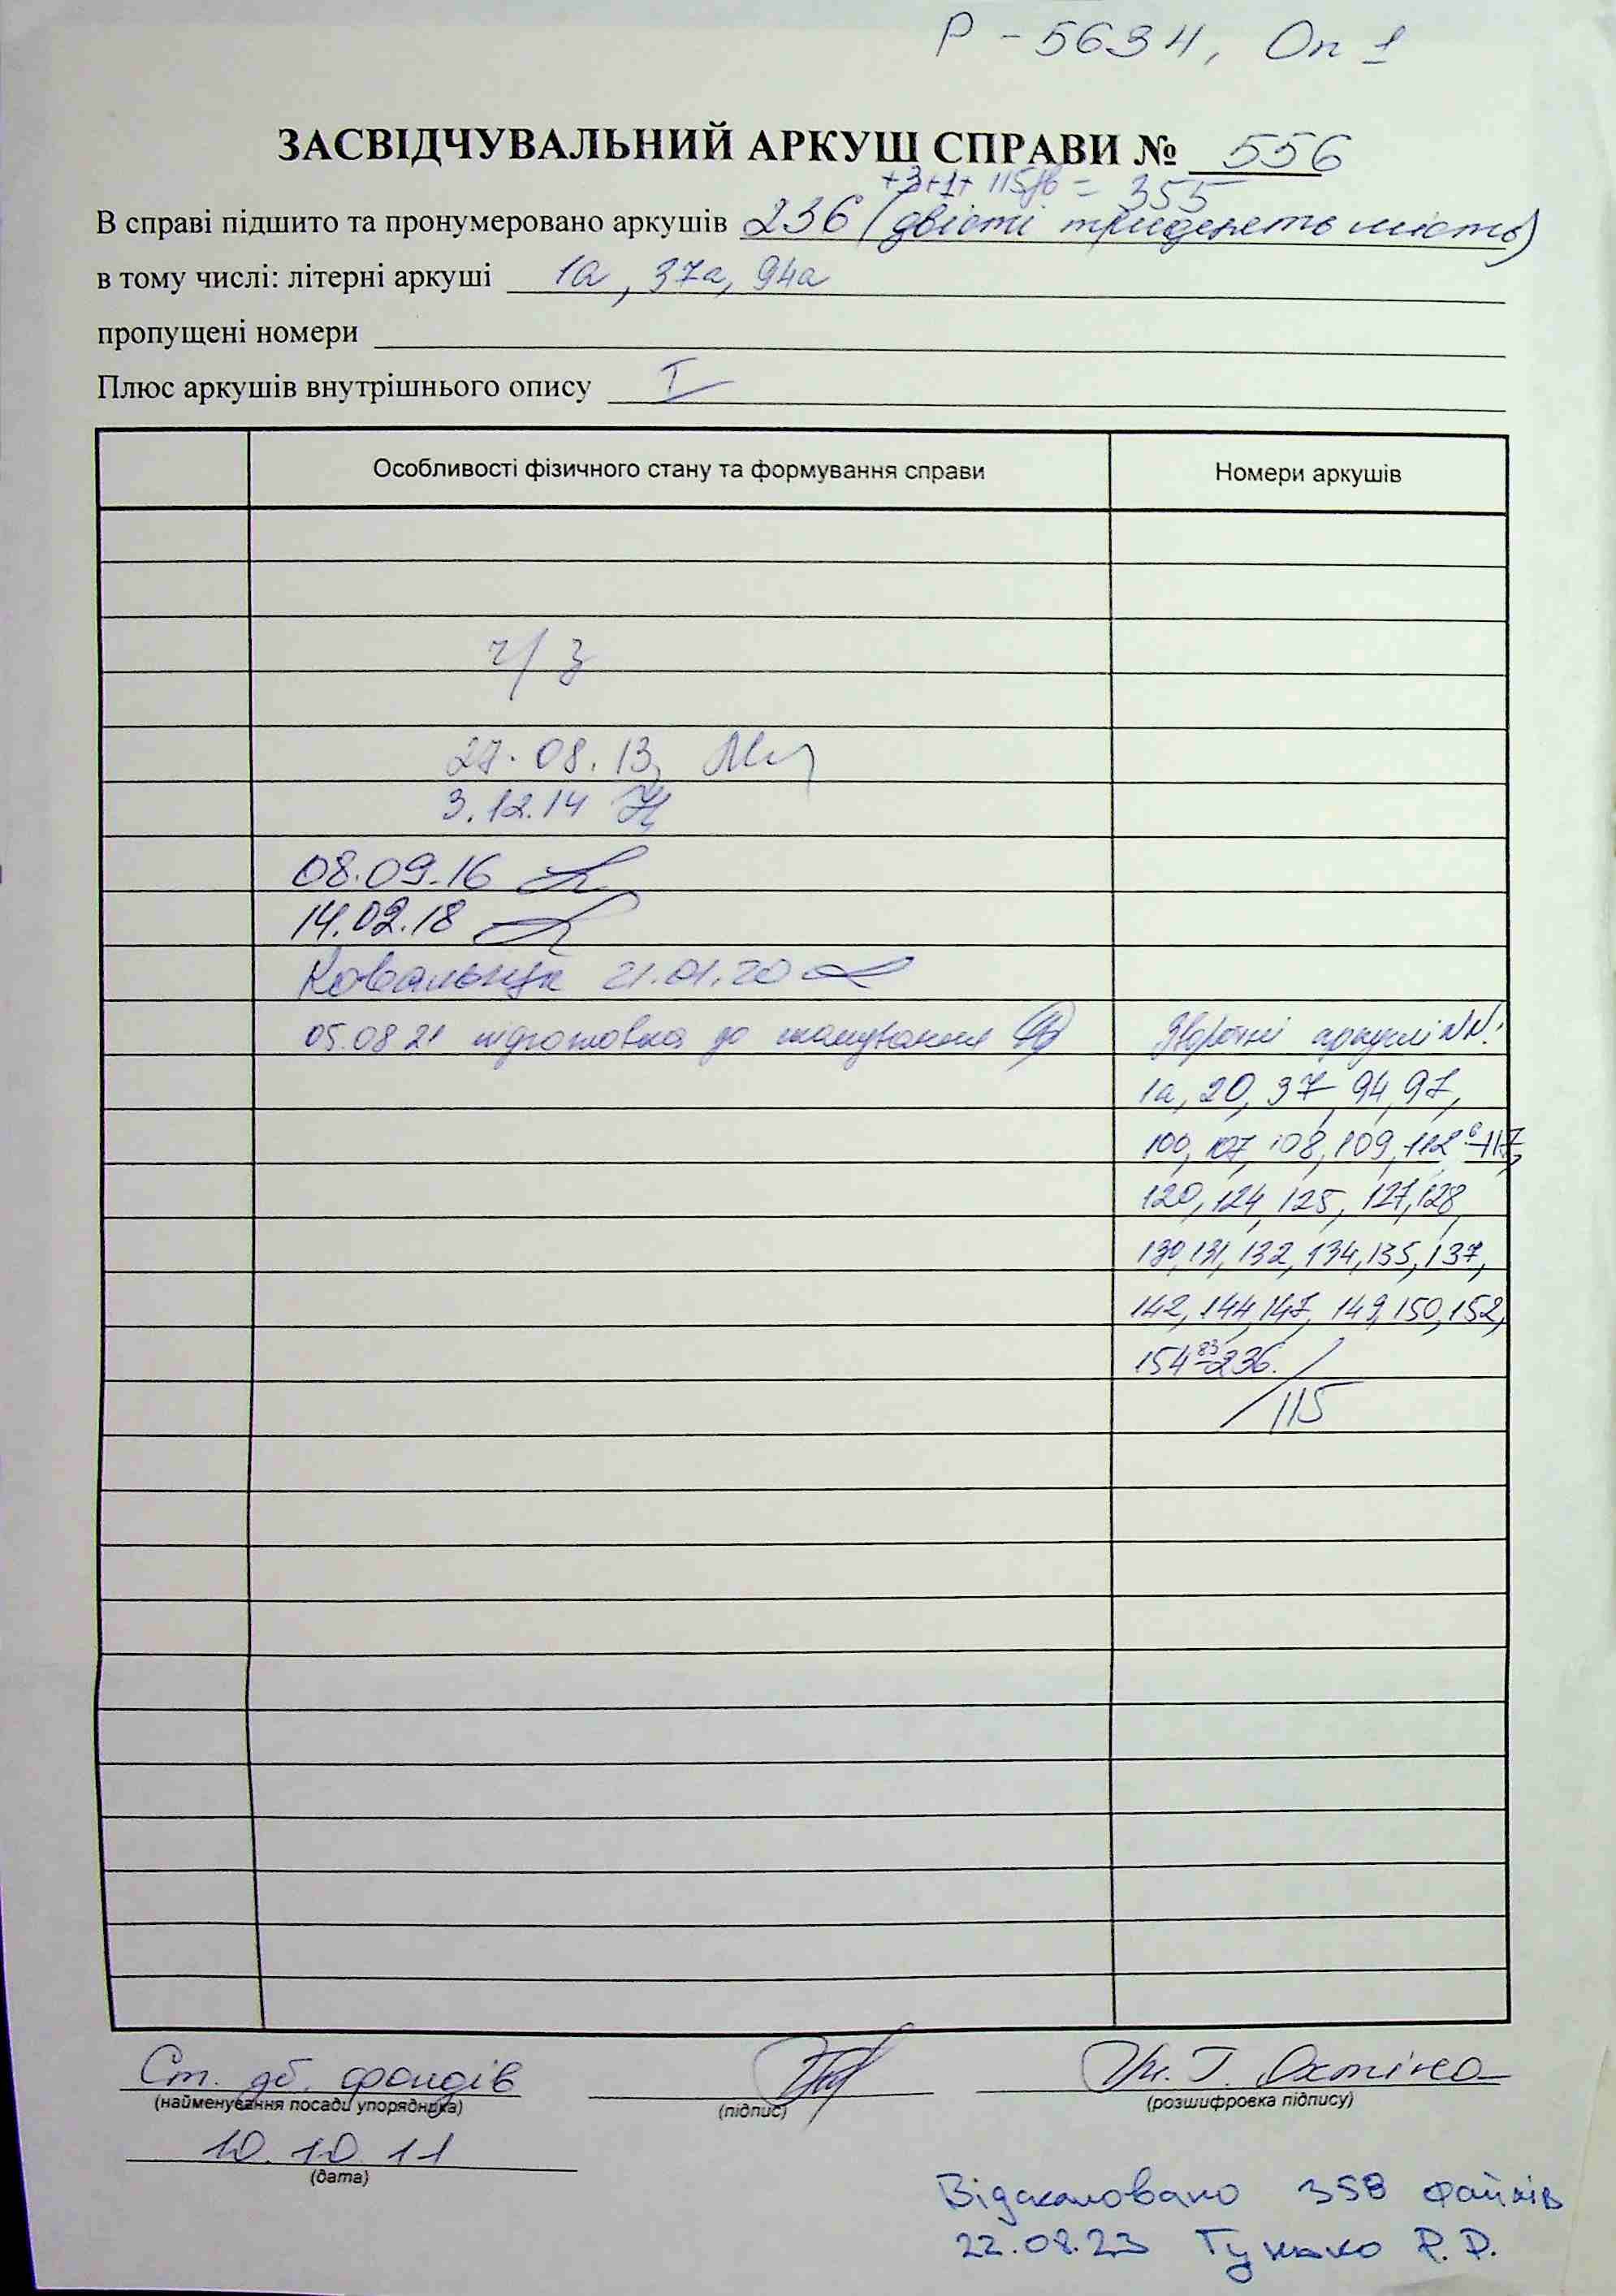 Р - 5634, Оп 1
ЗАСВІДЧУВАЛЬНИЙ АРКУШ СПРАВИ № 556
+3+1+ 115зв = 355
В справі підшито та пронумеровано аркушів 236 (двісті тридцять шість)
в тому числі: літерні аркуші 1а, 37а, 94а
пропущені номери
Плюс аркушів внутрішнього опису I
Особливості фізичного стану та формування справи Номери аркушів
ч/з
27.08.13
3.12.14
08.09.16
14.02.18
Ковальчук 21.01.20
05.08 21 підготовка до сканування Зворотні аркуші NN:
1а, 20, 37, 94, 97,
100, 107, 108, 109, 112-117,
6
120, 124, 125, 127, 128,
130, 131, 132, 134, 135, 137,
142, 144, 147, 149, 150, 152,
83
154-236.
115
Ст. зб. фондів Ін. Г. Охтіна
(найменування посади упорядника) (підпис) (розшифровка підпису)
10.10.11
(дата)
Відскановано 358 файлів
22.08.23 Гунько Р.Р.